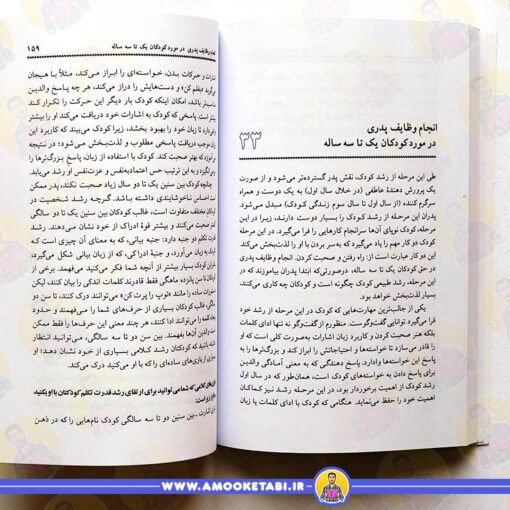 ۳۳
انجام وظایف پدری
در مورد کودکان یک تا سه ساله
طی این مرحله از رشد کودک، نقش پدر گسترده‌تر می‌شود و از صورت
یک پرورش دهندهٔ عاطفی (در خلال سال اول) به یک دوست و همراه
سرگرم کننده (از سال اول تا سال سوم زندگی کودک) مبدل می‌شود.
پدران این مرحله از رشد کودک را بسیار دوست دارند، زیرا در این
مرحله، کودک نوپای آن‌ها سرانجام کارهایی را فرا می‌گیرد. در این مرحله
کودک دو کار مهم را یاد می‌گیرد که به سر بردن با او را لذت‌بخش می‌کند.
این دو کار عبارت است از: راه رفتن و صحبت کردن. انجام وظایف پدری
در حق کودکان یک تا سه ساله، درصورتی‌که ابتدا پدران بیاموزند که در
این مرحله، رشد طبیعی کودک چگونه است و کودکان چه کاری می‌کنند،
بسیار لذت‌بخش خواهد بود.
یکی از جالب‌ترین مهارت‌هایی که کودک در این مرحله از رشد خود
فرا می‌گیرد توانایی گفت‌وگوست. منظورم از گفت‌وگو نه تنها ادای کلمات
بلکه هنر صحبت کردن و کاربرد زبان اشارات به‌صورت کلی است که او
را قادر می‌سازد تا خواسته‌ها و احتیاجاتش را ابراز کند و بزرگ‌ترها را به
پاسخ این خواسته‌ها وادارد. پاسخ دهندگی که به معنی آمادگی والدین
برای پاسخ دادن به خواسته‌های کودک است، همان‌طور که در سال اول
رشد کودک از اهمیت برخوردار بود، در این مرحله از رشد نیز کماکان
اهمیت خود را حفظ می‌نماید. هنگامی که کودک با ادای کلمات یا زبان
انجام وظایف پدری در مورد کودکان یک تا سه ساله ۱۵۹
اشارات و حرکات بدن، خواسته‌ای را ابراز می‌کند، مثلاً با هیجان
می‌گوید «بغلم کن» و دست‌هایش را دراز می‌کند، هر چه پاسخ والدین
مناسبتر باشد، امکان اینکه کودک بار دیگر این حرکت را تکرار کند
پاسخی که کودک به اشارات خود دریافت می‌کند او را
دارد تا زبان خود را بهبود بخشد، زیرا کودک می‌بیند که کاربرد این
موجب دریافت پاسخی مطلوب و لذت‌بخش می‌شود؛ در نتیجه
که بهتر صحبت کند. کودک با استفاده از زبان، پاسخ بزرگ‌ترها را
و به این ترتیب حس اعتمادبه‌نفس و عزت‌نفس او رشد می‌یابد.
چنانچه کودک بین سنین یک تا دو سال زیاد صحبت نکند، پدر ممکن
است احساس ناخوشایندی داشته باشد. گرچه رشد گفتاری در
کودکان مختلف متفاوت است، غالب کودکان بین سنین یک تا دو سالگی
کمتر صحبت می‌کنند و بیشتر قوهٔ ادراک از خود نشان می‌دهند. رشد
قدرت تکلم دو جنبه دارد: جنبه بیانی، که به معنای آن چیزی است که
کودک به زبان می‌آورد، و جنبهٔ ادراکی، که از زبان بیانی شکل می‌گیرد،
این کودک بسیار بیشتر از آنچه شما فکر می‌کنید می‌فهمد. برخی از
کودکان تا سن پانزده ماهگی فقط قادرند کلمات اندکی را بیان کنند، لیکن
دستورات ساده را مانند «توپ را پرت کن» می‌توانند درک کنند، تا سن دو
سالگی، غالب کودکان بسیاری از حرف‌های شما را می‌فهمند و حدود
کلمه را می‌توانند ادا کنند، هر چند معنی این حرف‌ها را فقط ممکن
است والدین آن‌ها بفهمند. بین سن دو تا سه سالگی، می‌توانید انتظار
داشته باشید که کودکتان رشد کلامی بسیاری از خود نشان دهد؛ او
بسیاری از بازی‌های ساده‌ای را که می‌تواند درک می‌کند.
بازی‌های کلامی که شما می‌توانید برای ارتقای رشد قدرت تکلم کودکتان با او بکنید
اشارت ـ بین سنین دو تا سه سالگی کودک نام‌هایی را که در ذهن
WWW.AMOOKETABI.IR